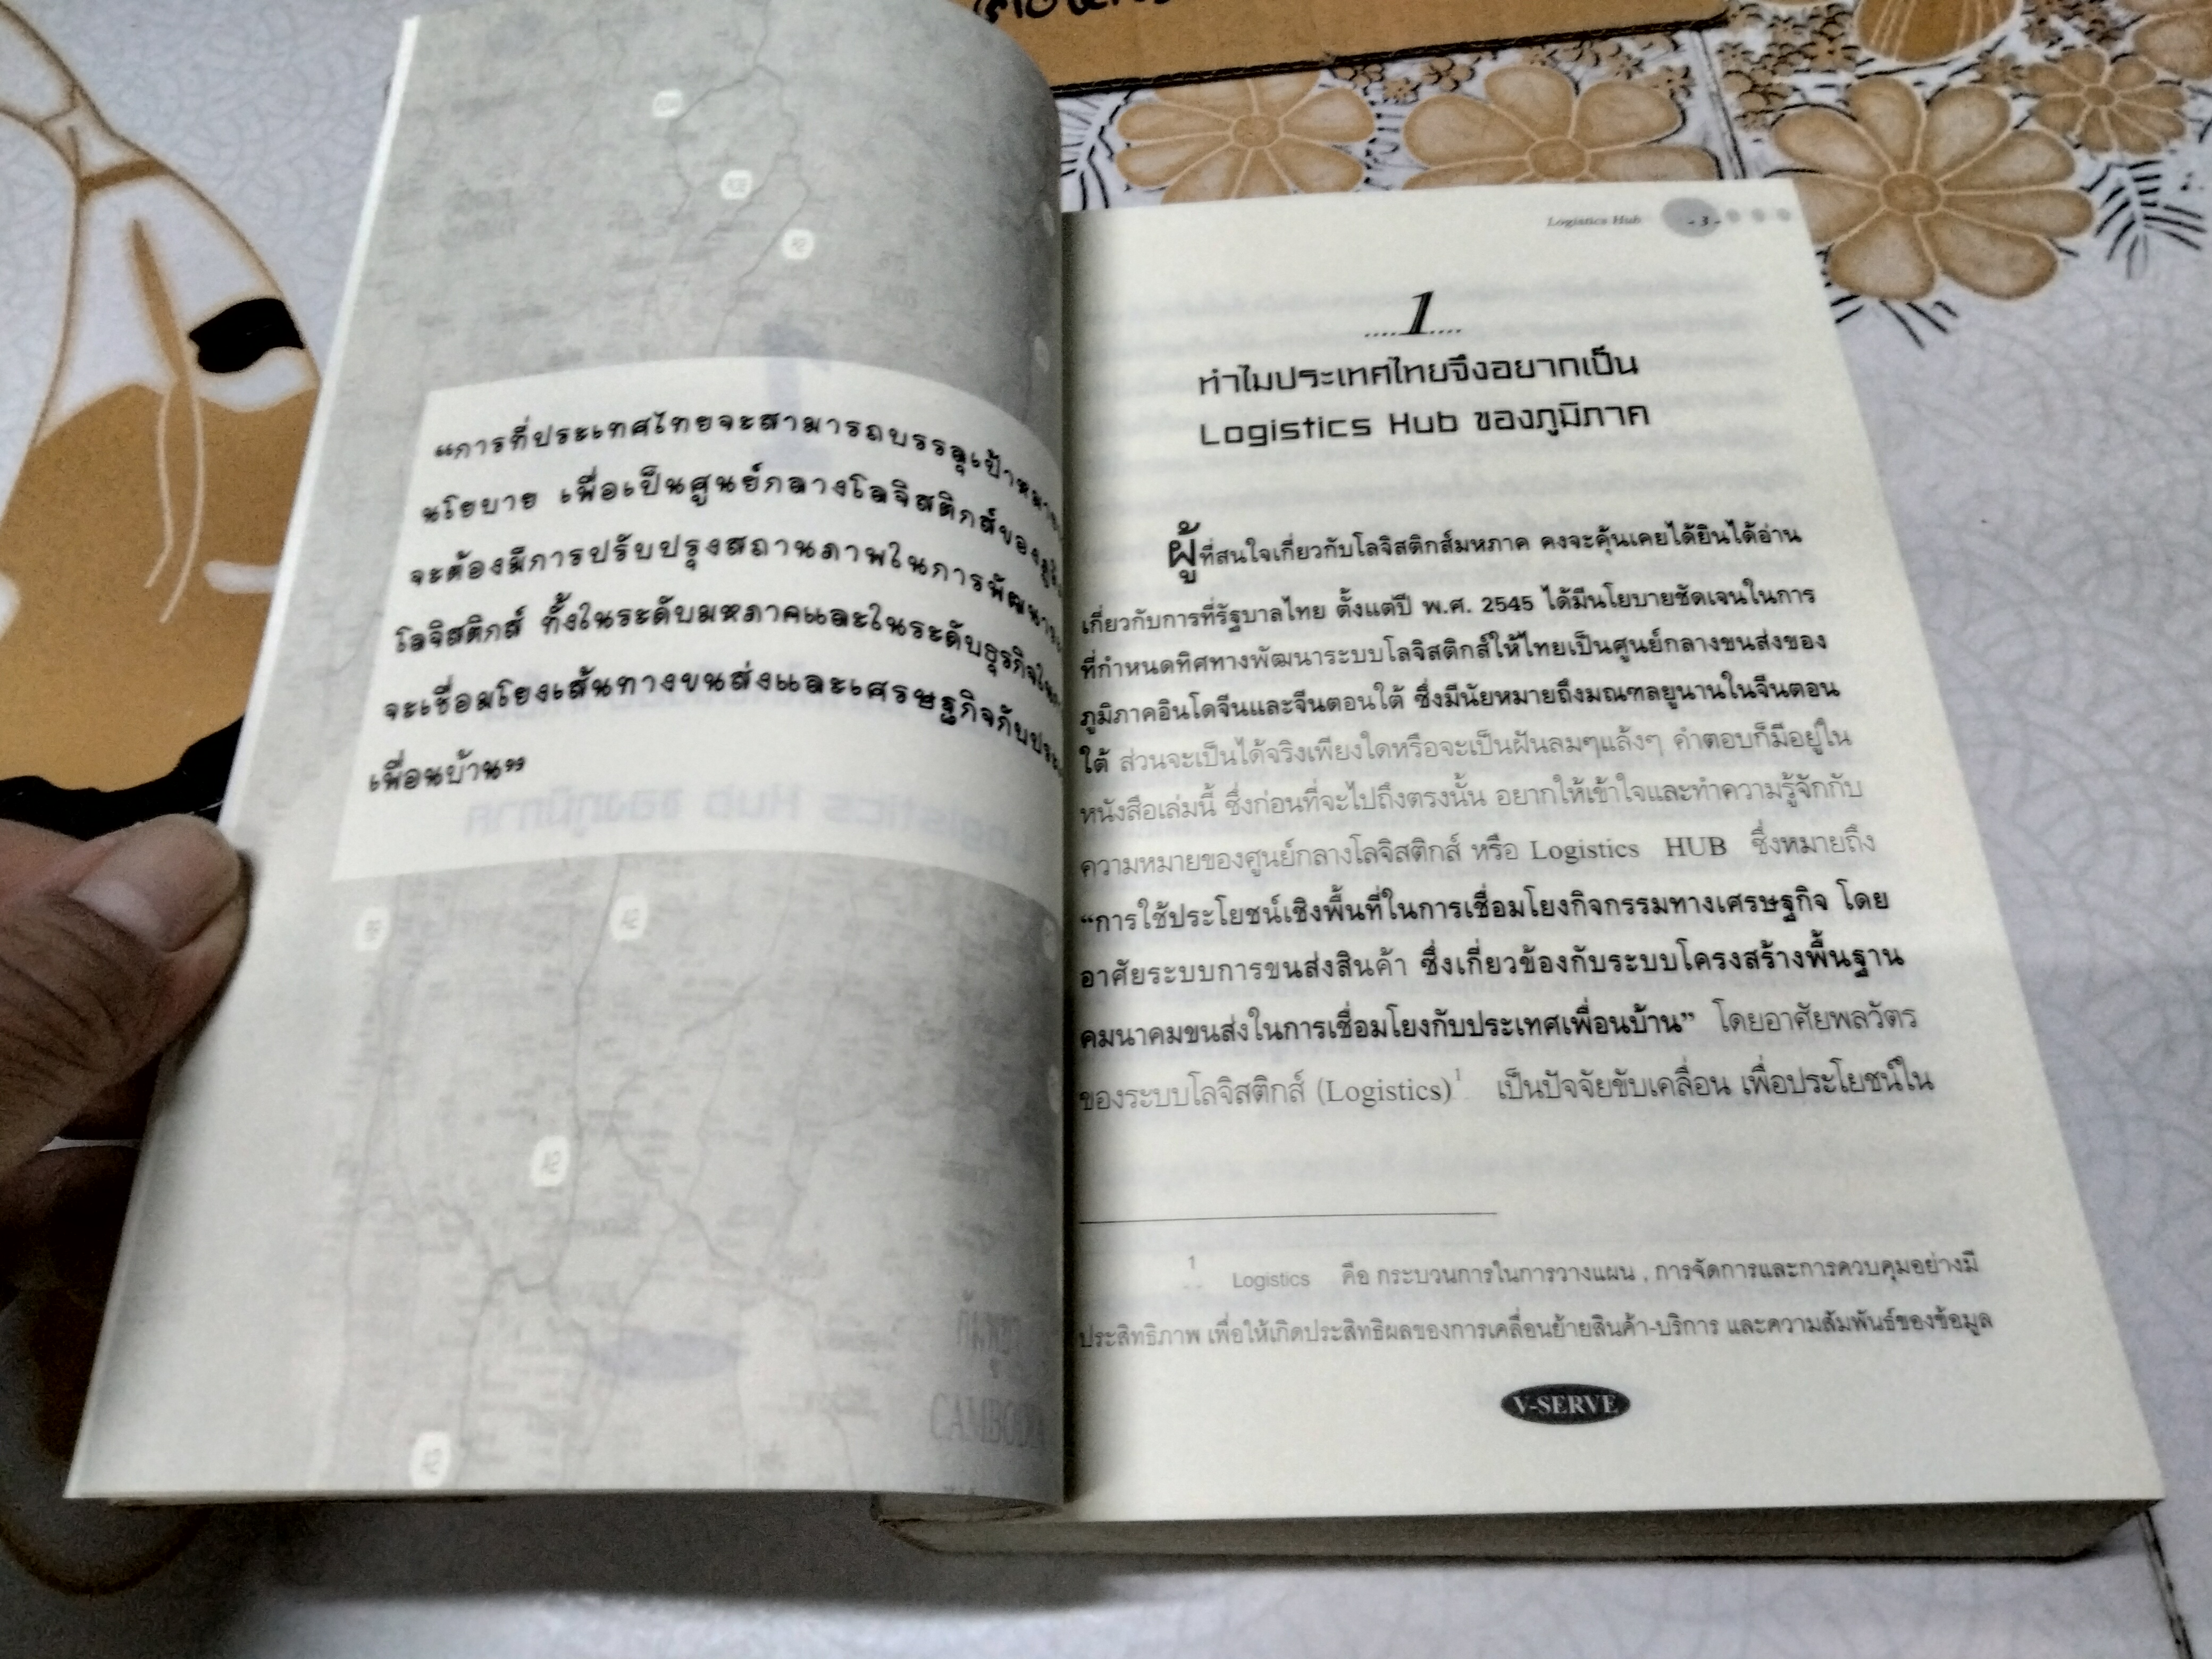 “การที่ประเทศไทยจะสามารถบรรลุเป้าหมาย
นโยบาย เพื่อเป็นศูนย์กลางโลจิสติกส์ของ
จะต้องมีการปรับปรุงสถานภาพในการพัฒนา
โลจิสติกส์ ทั้งในระดับมหภาคและในระดับธุรกิจ
จะเชื่อมโยงเส้นทางขนส่งและเศรษฐกิจกับ
เพื่อนบ้าน”
A2
A2
CAMBODIA
Logistics Hub - 3 -
1
ทำไมประเทศไทยจึงอยากเป็น
Logistics Hub ของภูมิภาค
ผู้ที่สนใจเกี่ยวกับโลจิสติกส์มหภาค คงจะคุ้นเคยได้ยินได้อ่าน
เกี่ยวกับการที่รัฐบาลไทย ตั้งแต่ปี พ.ศ. 2545 ได้มีนโยบายชัดเจนในการ
ที่กำหนดทิศทางพัฒนาระบบโลจิสติกส์ให้ไทยเป็นศูนย์กลางขนส่งของ
ภูมิภาคอินโดจีนและจีนตอนใต้ ซึ่งมีนัยหมายถึงมณฑลยูนานในจีนตอน
ใต้ ส่วนจะเป็นได้จริงเพียงใดหรือจะเป็นฝันลมๆแล้งๆ คำตอบก็มีอยู่ใน
หนังสือเล่มนี้ ซึ่งก่อนที่จะไปถึงตรงนั้น อยากให้เข้าใจและทำความรู้จักกับ
ความหมายของศูนย์กลางโลจิสติกส์ หรือ Logistics HUB ซึ่งหมายถึง
“การใช้ประโยชน์เชิงพื้นที่ในการเชื่อมโยงกิจกรรมทางเศรษฐกิจ โดย
อาศัยระบบการขนส่งสินค้า ซึ่งเกี่ยวข้องกับระบบโครงสร้างพื้นฐาน
คมนาคมขนส่งในการเชื่อมโยงกับประเทศเพื่อนบ้าน” โดยอาศัยพลวัตร
ของระบบโลจิสติกส์ (Logistics)1 เป็นปัจจัยขับเคลื่อน เพื่อประโยชน์ใน
1 Logistics คือ กระบวนการในการวางแผน , การจัดการและการควบคุมอย่างมี
ประสิทธิภาพ เพื่อให้เกิดประสิทธิผลของการเคลื่อนย้ายสินค้า-บริการ และความสัมพันธ์ของข้อมูล
V-SERVE